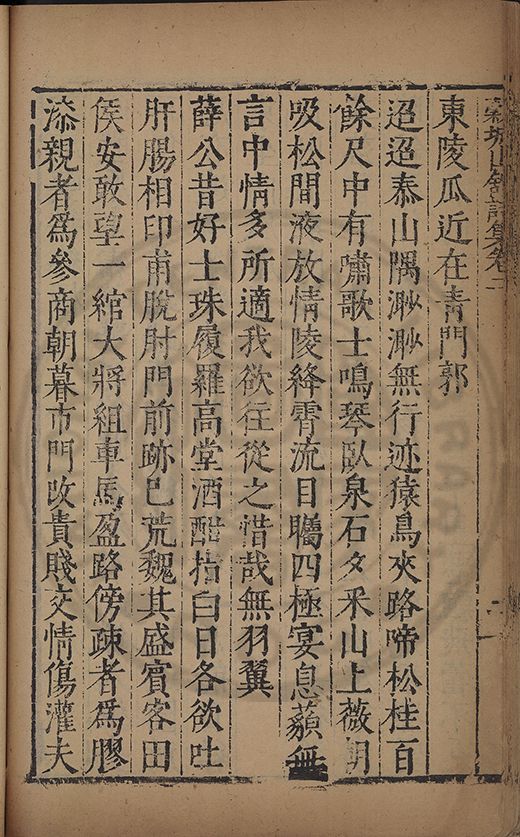 東陵瓜近在青門郭
迢迢泰山隅渺渺無行迹猿鳥夾路啼松桂百
餘尺中有嘯歌士鳴琴臥泉石夕釆山上薇朝
吸松間液放情陵絳霄流日矚四極宴息藐無
言中情多所適我欲往從之惜哉無羽翼
薛公昔好士珠履羅高堂酒酣指白日各欲吐
肝腸相印甫脫肘門前跡已荒魏其盛賓客田
侯安敢望一綰大將組車馬盈路傍疎者爲膠
漆親者爲參商朝暮市門改貴賤交情傷灌夫